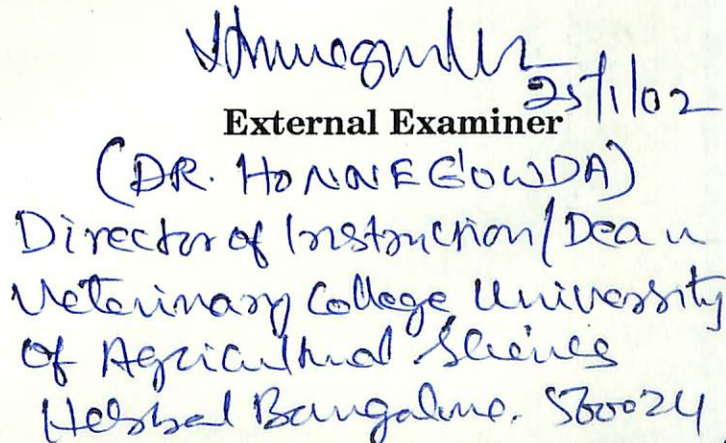 25/1/02
External Examiner
(DR. HONNEGOWDA)
Director of Instruction/Dean
Veterinary College University
of Agricultural Sciences
Hebbal Bangalore. 560024